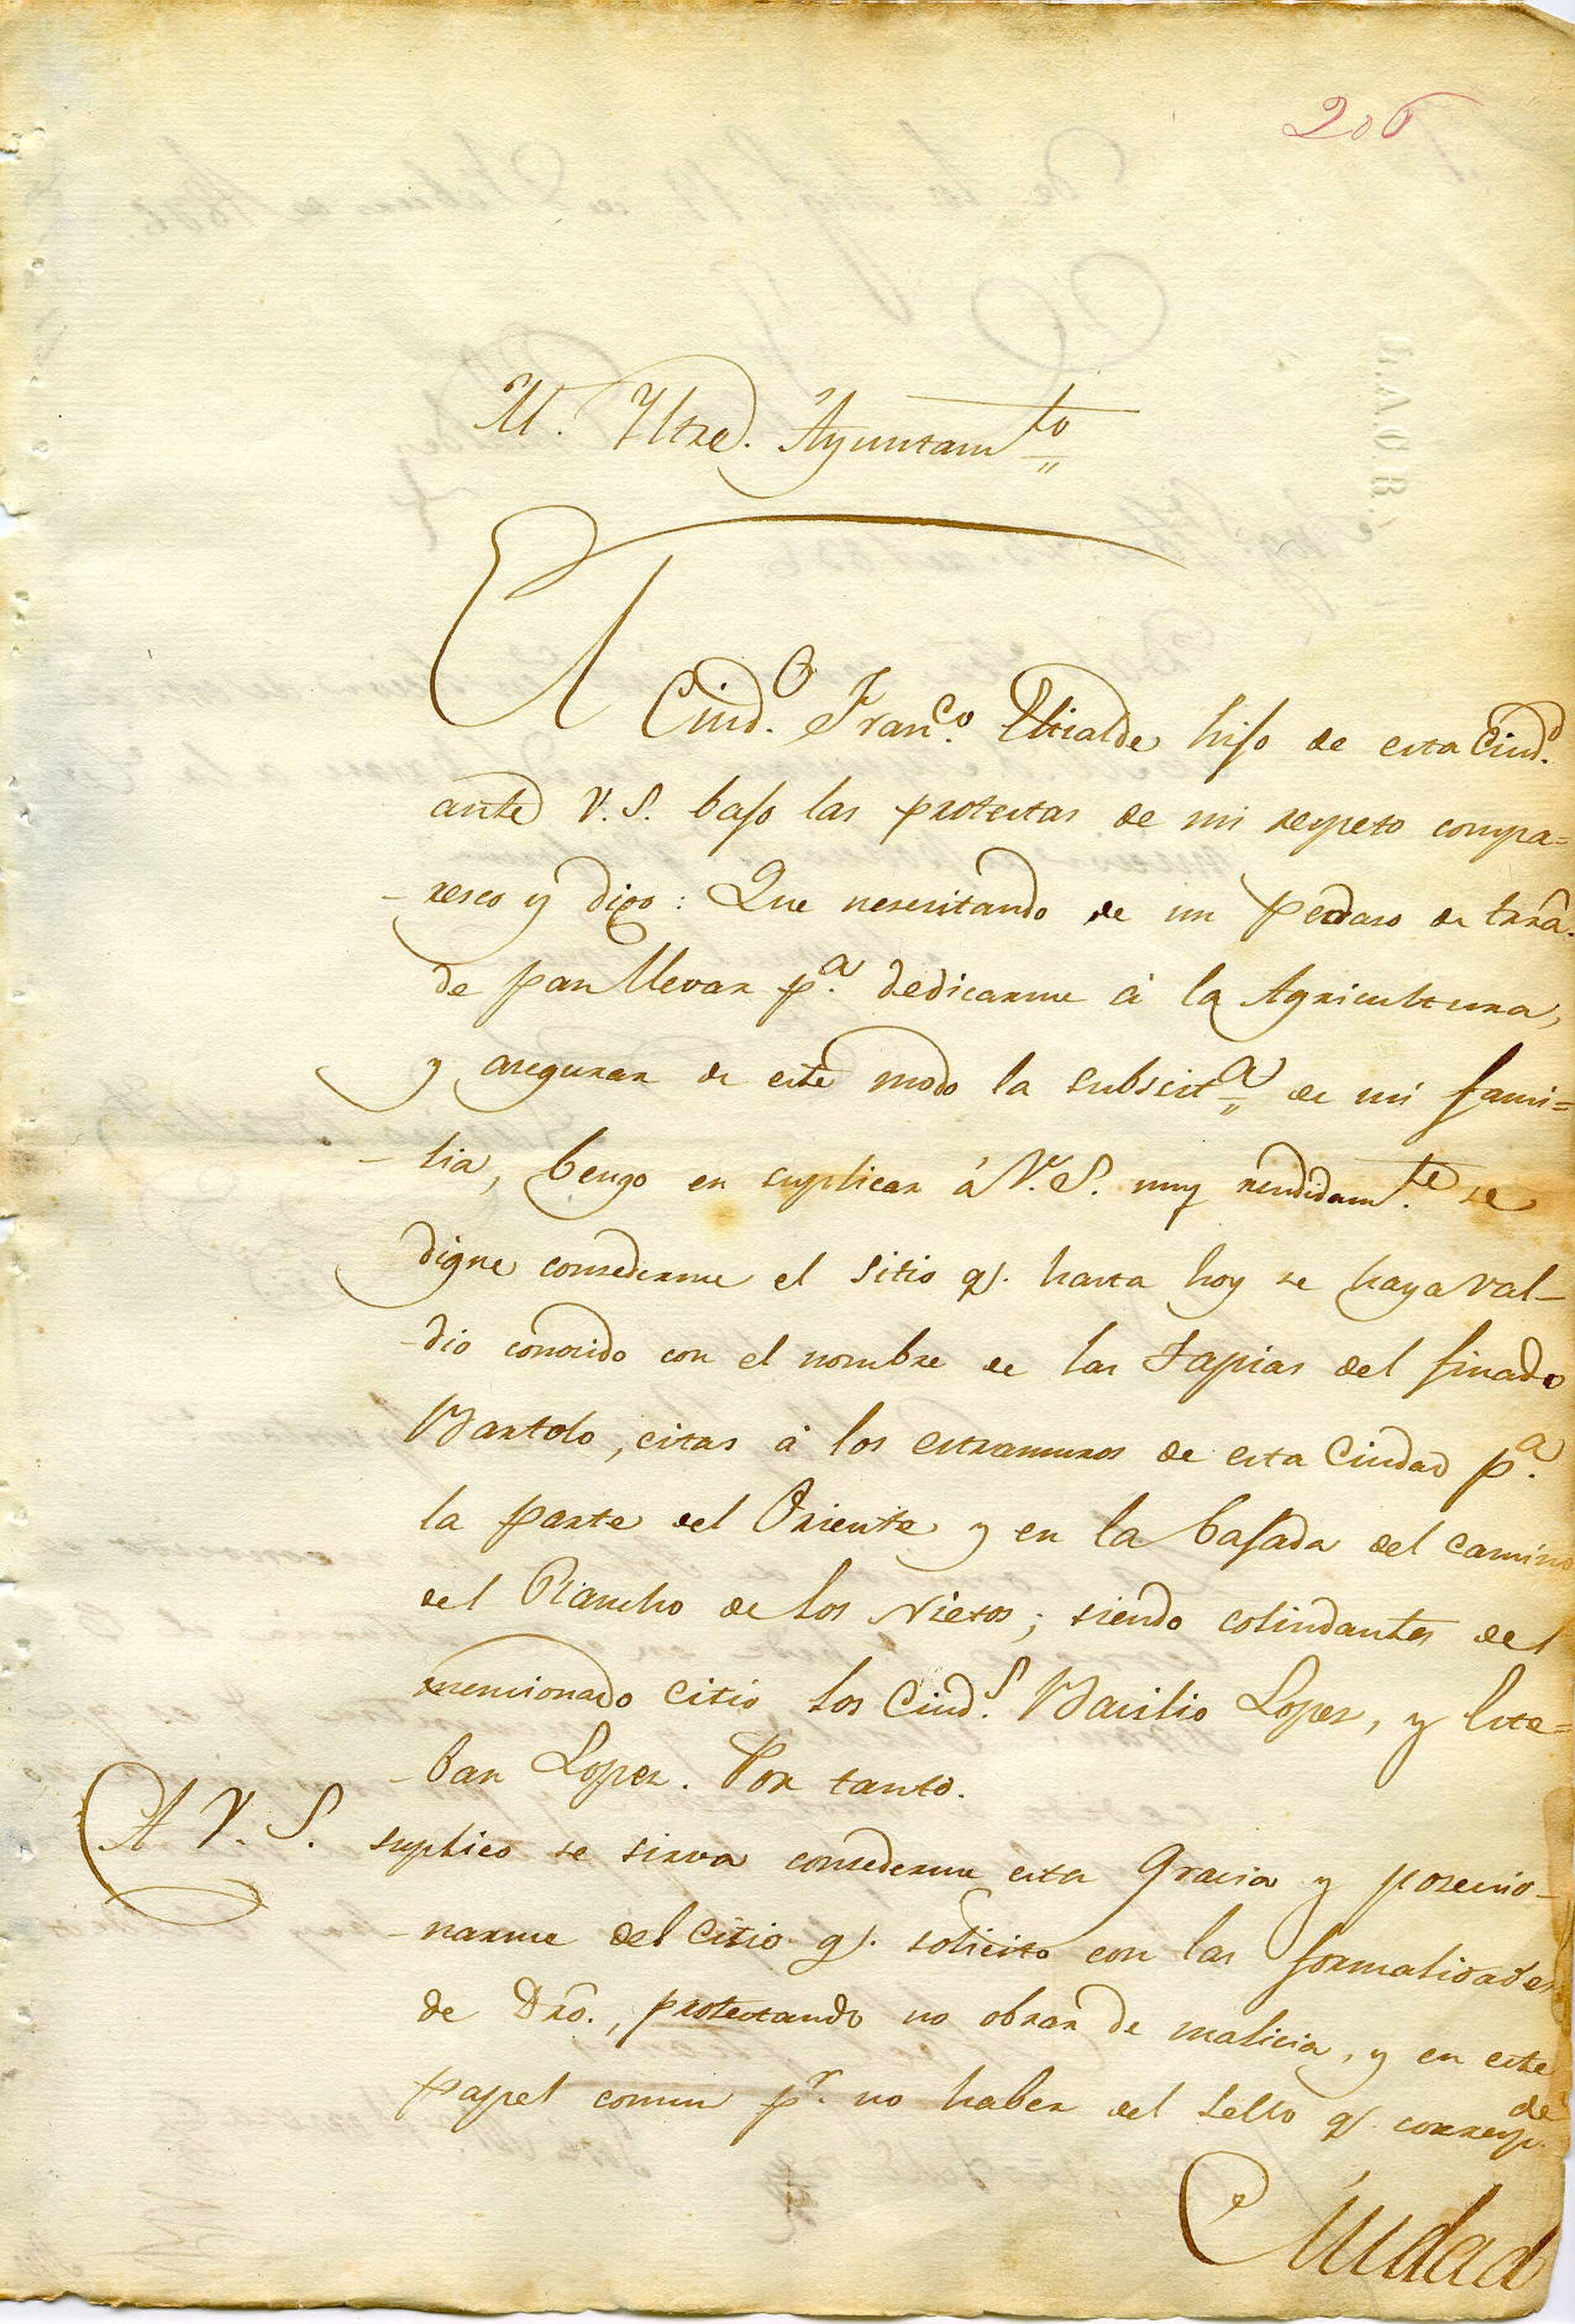 206
M. Iltre. Ayuntamto
El Ciudo. Franco. Uticalde hijo de esta Ciudd.
ante V.S. bajo las protestas de mi respeto compa=
-resco y digo: Que nesesitando de un pedaso de trrâ.
de pan llevar pa. dedicarme à la Agricultura,
y asegurar de este modo la subscista de mi fami=
-lia, bengo en suplicar á V.S. muy rendidamte. se
digne consederme el sitio q. hasta hoy se haya val-
-dio conosido con el nombre de las tapias del finado
Bartolo, citas à los extramuros de esta Ciudad pa.
la parte del Oriente y en la bajada del camino
del Rancho de los Nietos; siendo colindantes del
mencionado citio los Ciuds. Bacilio Lopez, y Este=
-ban Lopez. Por tanto.
A V. S. suplico se sirva consederme esta Gracia y posecio-
-narme del citio q. solicito con las formalidades
de Dro., protestando no obrar de malicia, y en este
papel comun pr. no haber del sello q. correspde.
Ciudad
G.A.C.B.